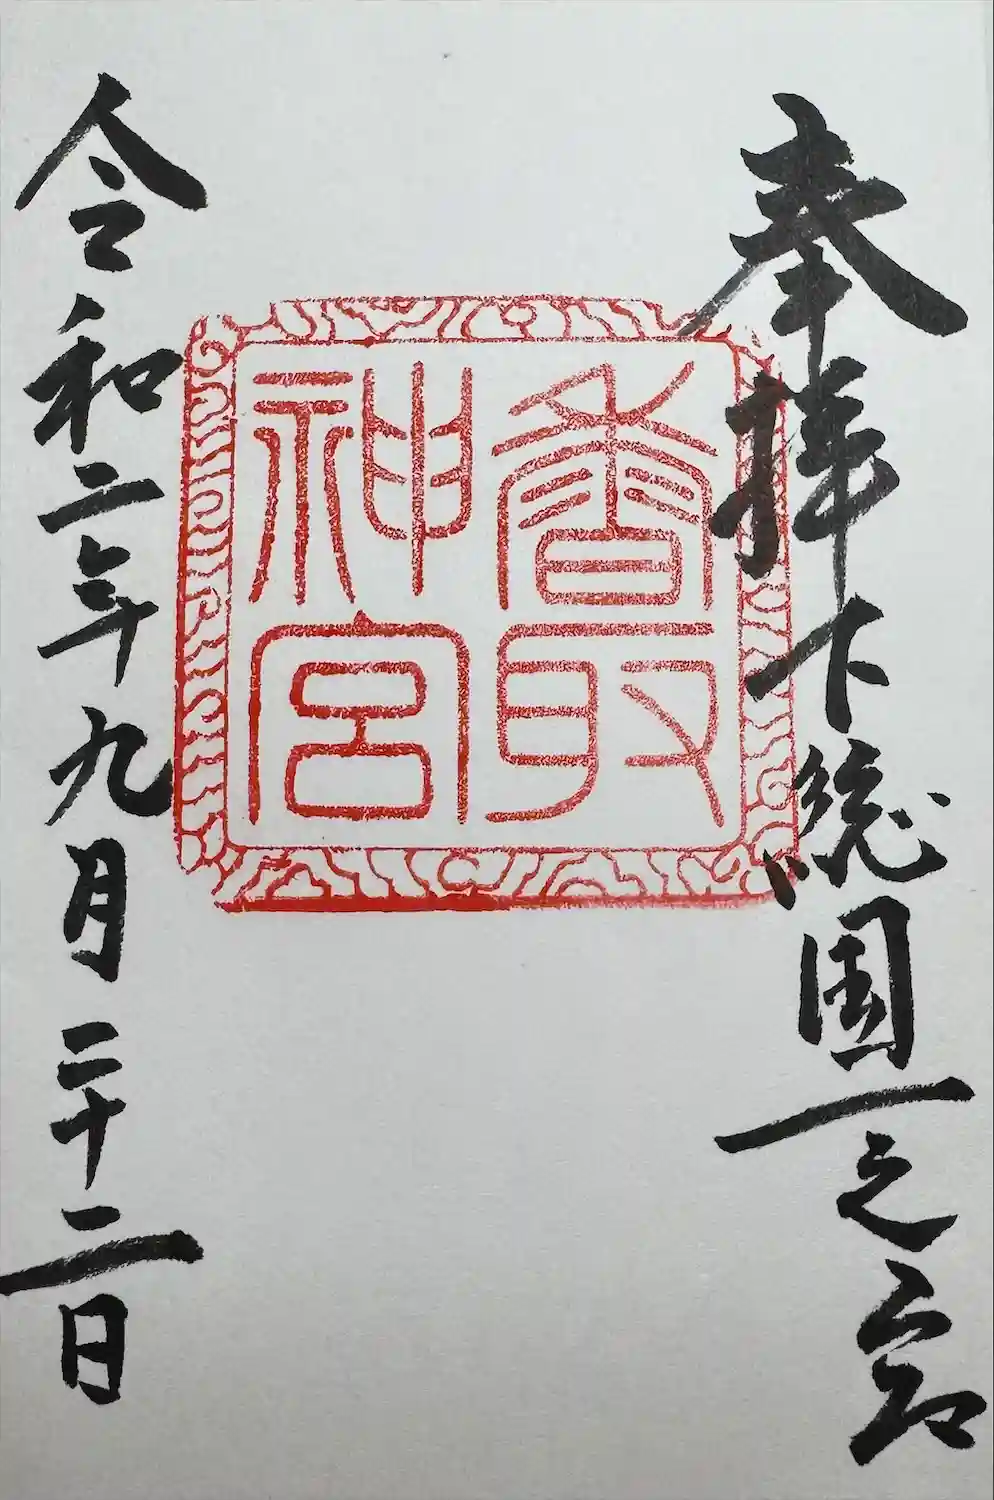 奉拝下総国一之宮
香取
神宮
令和二年九月二十二日